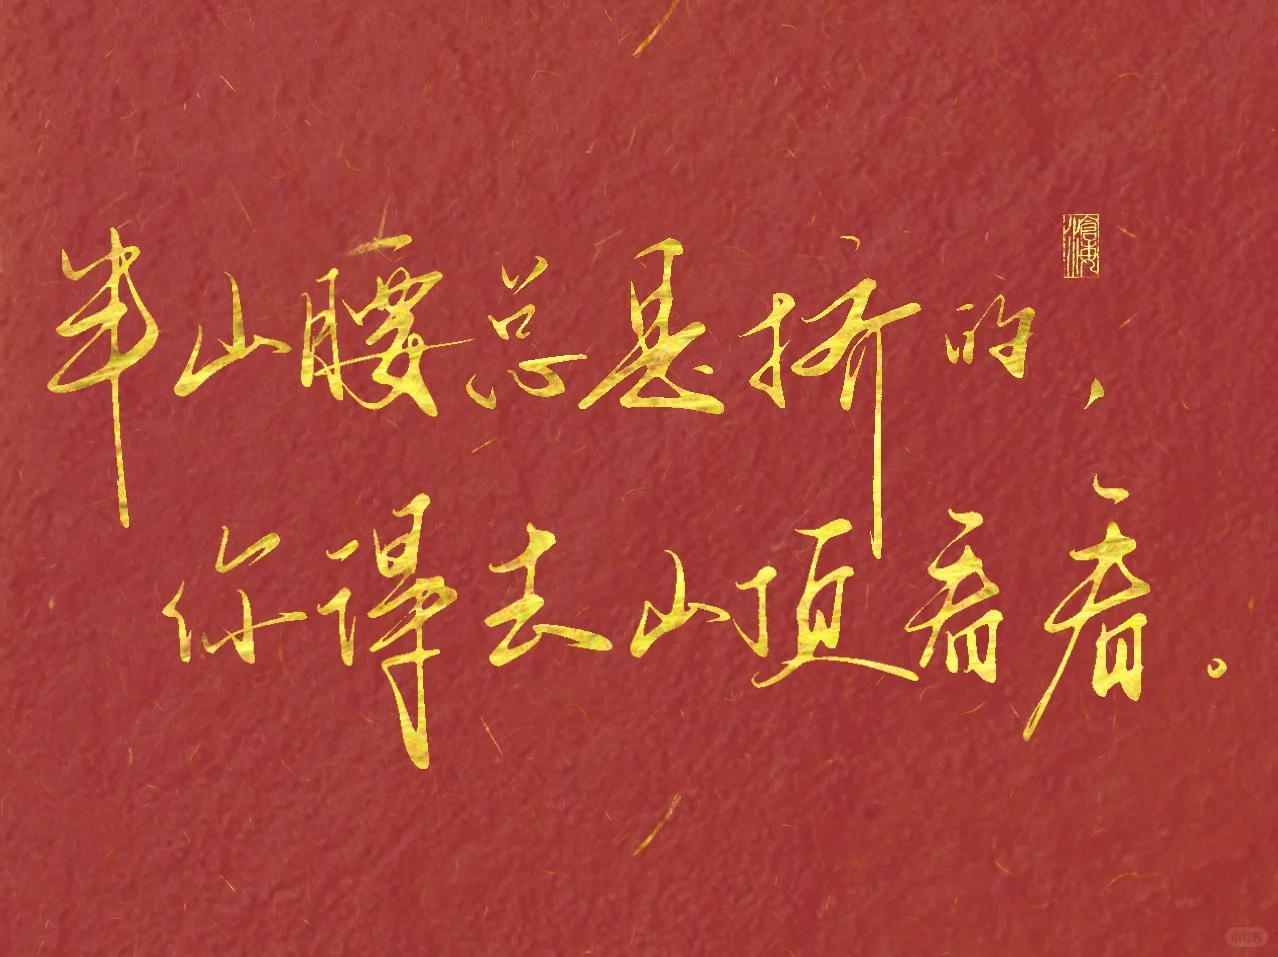 半山腰总是挤的，
你得去山顶看看。
沧海
小红书